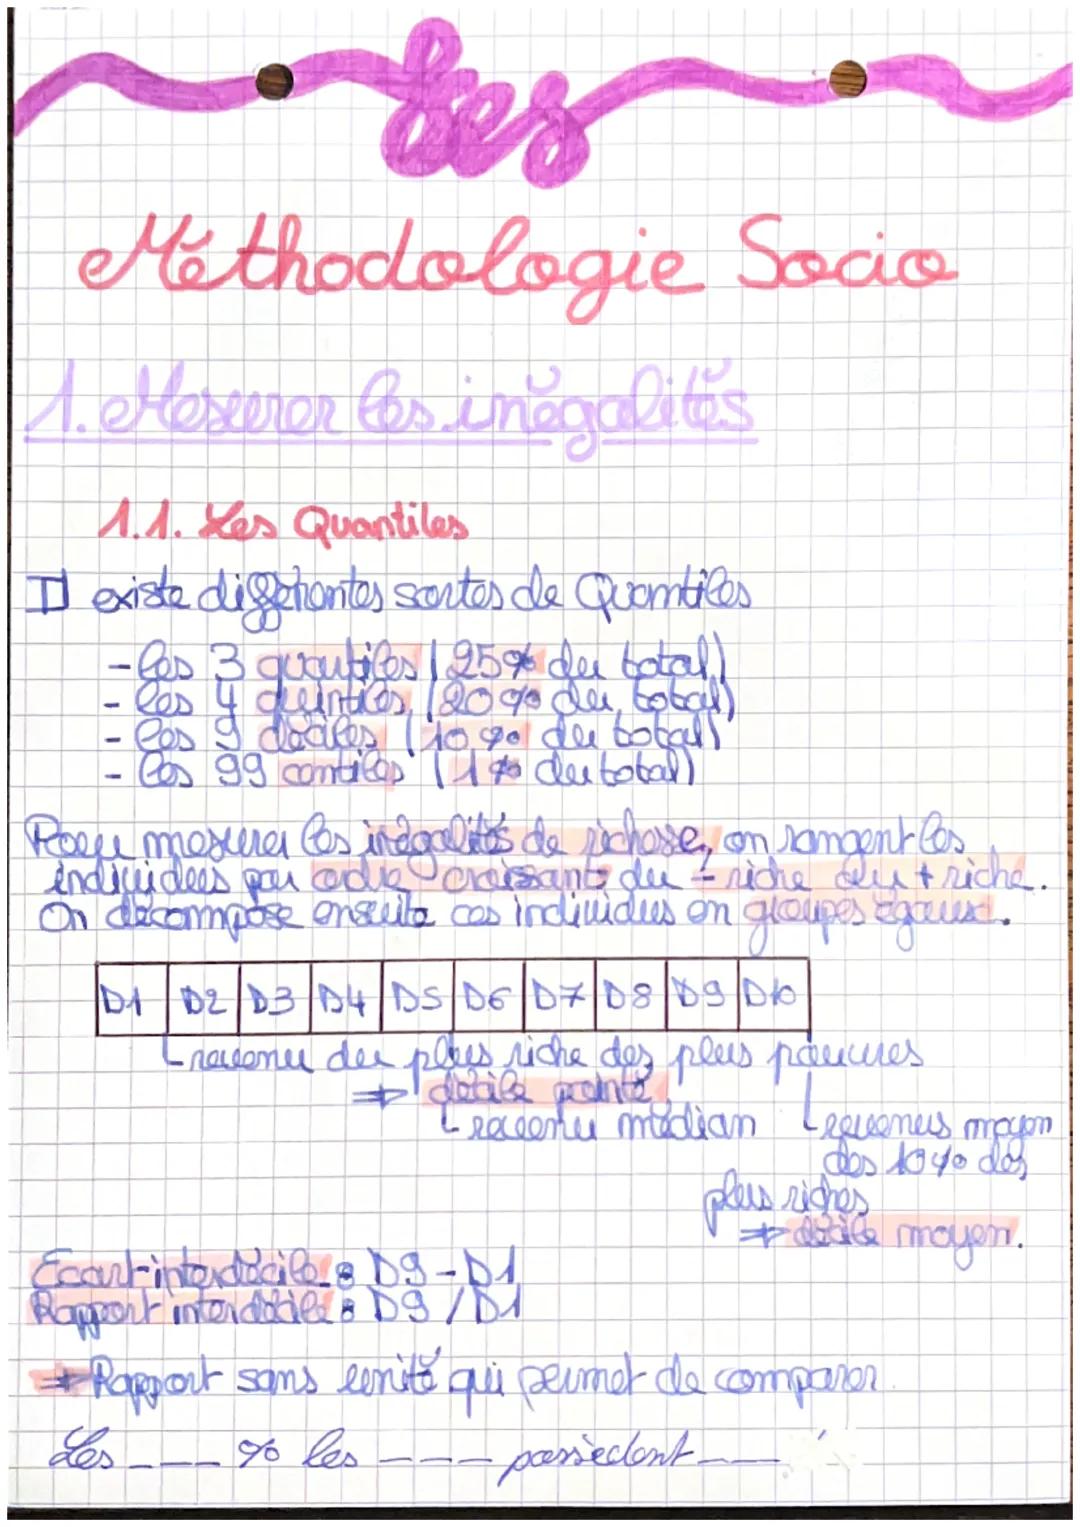 Ses
Méthodologie Socio
1. Mesurer les inégalités
1.1. Les Quantiles
Il existe différentes sortes de Quantiles
- les 3 quartiles (25% du total)
- les 4 quintiles (20% du total)
- les 9 déciles (10% du total)
- les 99 centiles (1% du total)
Pour mesurer les inégalités de richesse, on rangent les
individus par ordre croissant du - riche au + riche.
On décompose ensuite ces individus en groupes égaux.
D1 D2 D3 D4 D5 D6 D7 D8 D9 D10
revenu du plus riche des plus pauvres
⇒ décile pointé
revenu médian
revenus moyen
des 10% des
plus riches
⇒ décile moyen.
Ecart interdécile : D9 - D1
Rapport interdécile : D9 / D1
⇒ Rapport sans unité qui permet de comparer.
Les ___ % les ___ possèdent ___